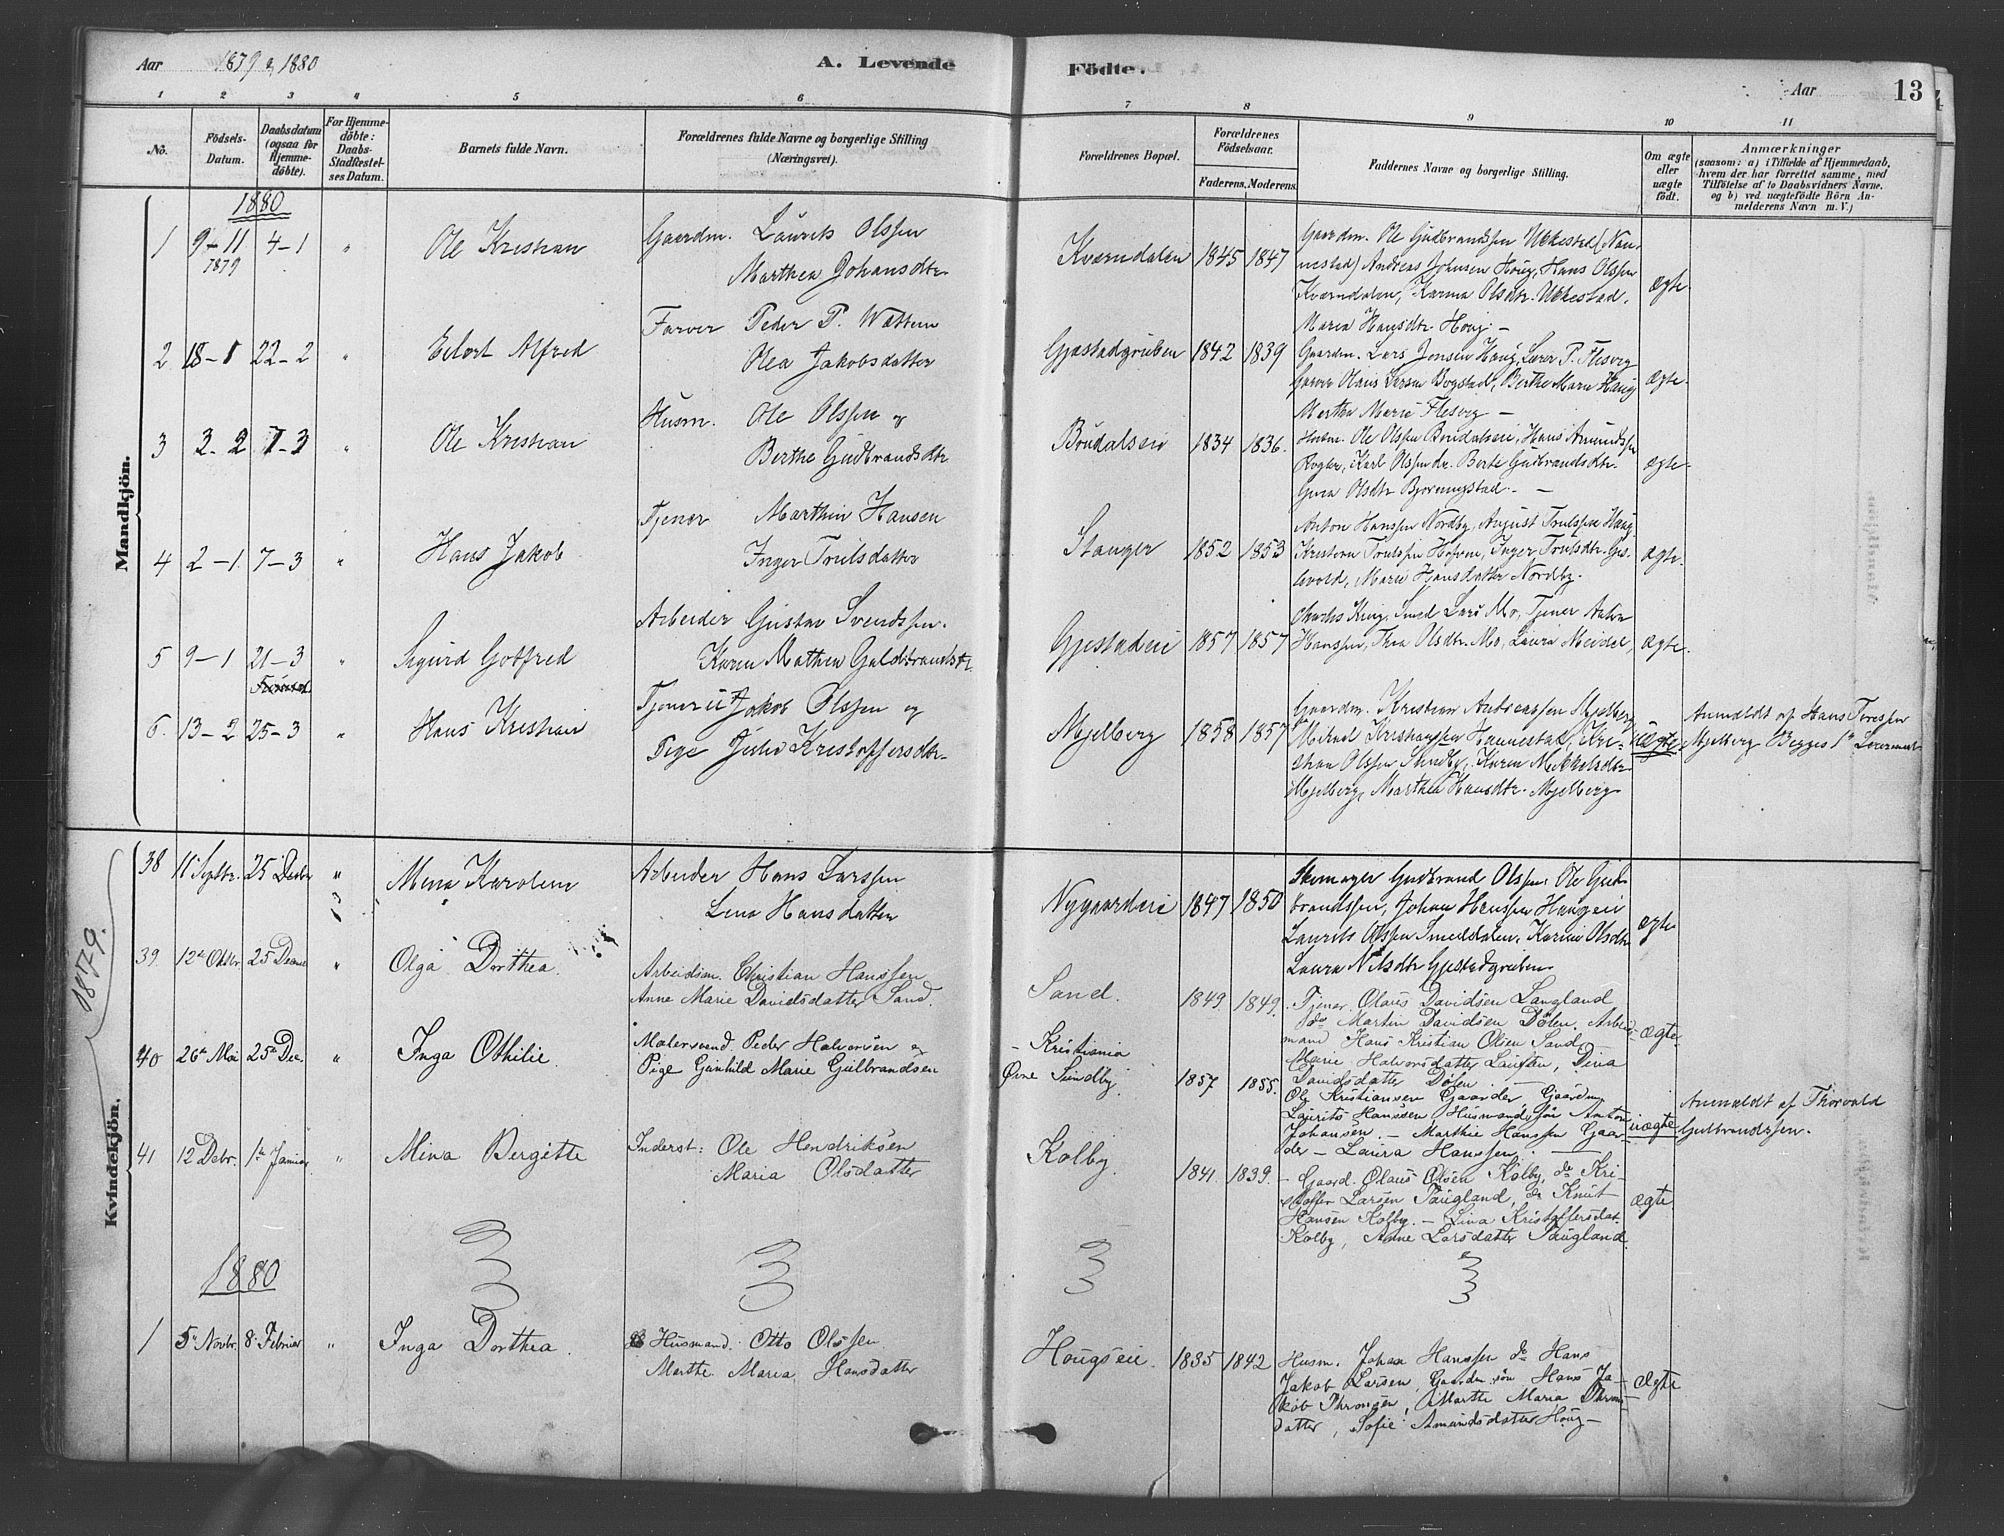 Aar 1879 & 1880 A. Levende Födte. Aar 13
1 2 3 4 5 6 7 8 9 10 11
No. Födsels-Datum. Daabsdatum (ogsaa for Hjemmedöbte). For Hjemmedöbte: Daabs-Stadfæstelses Datum. Barnets fulde Navn. Forældrenes fulde Navne og borgerlige Stilling (Næringsvei). Forældrenes Bopæl. Forældrenes Födselsaar. Faderens. Moderens. Faddernes Navne og borgerlige Stilling. Om ægte eller uægte födt. Anmærkninger (saasom: a) i Tilfælde af Hjemmedaab, hvem der har forrettet samme, med Tilföielse af to Daabsvidners Navne. og b) ved uægtefödte Börn Anmelderens Navn m. V.)
Mandkjön.
1880
1 9-11 1879 4-1 " Ole Kristian Gaardm. Laurits Olssen
Marthea Johansdtr. Kværndalen 1845 1847
Gaardm. Ole Gudbrandssen Ukkestad (Nan-
nestad) Andreas Johnsen Houg, Hans Olssen
Kværndalen, Karna Olsdtr. Ukkestad,
Maria Hansdtr. Houg. - ægte
2 18-1 22-2 " Eilert Alfred Farver Peder P. Wattum
Olea Jakobsdatter Gjestadgruben 1842 1839
Gaardm. Lars Jonsen Haug, Lærer P. Flesvig
Garver Olaus Larsen Bogstad, Berthe Marie Haug
Martha Marie Flesvig - ægte.
3 3-2 7-3 " Ole Kristian Husm. Ole Olssen og
Berthe Gudbrandsdtr. Brudalseie 1834 1836.
Husm. Ole Olssen Brudalseie, Hans Amundssen
Karl Olssen Berte Gudbrandsdtr.
Olsdtr. - ægte.
4 2-1 7-3 " Hans Jakob Tjener Marthin Hansen
Inger Trulsdatter Stanger 1852 1853
Anton Hanssen Nordby, August Trulssen Haug
Trulssen Inger Trulsdtr.
Marie Hansdatter Nordby. ægte.
5 9-1 21-3 " Sigurd Gotfred Arbeider Gustav Svendssen.
Karen Mathea Guldbrandsdtr. Gjestadeie 1857 1857
Charles King, Smed Lars Mo, Tjener Anton
Hanssen, Thea Olsdtr. Mo, Laura Meidel, ægte.
6. 13-2 25-3 " Hans Kristian Tjener Jakob Olssen og
Pige Julie Kristoffersdtr. Mjelberg 1858 1857
Gaardm. Kristian Andreassen Mjelberg
Mikael Kristianssen Hannestad, Kri-
stian Olssen Sundby, Karen Mikkelsdtr.
Mjelberg, Marthea Hansdtr. Mjelberg. uægte.
Anmeldt af Hans Toressen
Mjelberg
Kvindekjön.
1879.
38 11 Septbr. 25 Decbr " Mina Karoline Arbeider Hans Larssen
Lina Hansdatter Nygaardeie 1847 1850
Skomager Gudbrand Olssen, Ole Gud-
brandssen, Johan Hanssen Haugeie
Laurits Olssen Smeddalen, Karine Olsdtr
Laura Nilsdtr Gjestadgruben ægte
39 12te Oktbr. 25 Decbr " Olga Dorthea Arbeidsm. Christian Hanssen
Anne Marie Davidsdatter Sand. Sand. 1849. 1849.
Tjener Olaus Davidsen Langland
do Martin Davidsen Dölen. Arbeids-
mand Hans Kristian Olsen Sand
Marie Halvorsdatter Dina
Davidsdatter Dölen ægte.
40 26te Mai 25de Dec. " Inga Othilie Malersvend Peder Halvorsen og
Pige Gunhild Marie Gulbrandsen - Kristiania
Övre Sundby 1857 1855.
Ole Kristiansen Gaarder, Gaardm.
Laurits Hanssen, Husmandssön Anton
Johansen. - Marthie Hanssen Gaar-
der - Laura Hanssen. - uægte
Anmældt af Thorvald
Gulbrandssen.
41 12 Decbr. 1ste Januar " Mina Bergitte Inderst: Ole Hendriksen
Maria Olsdatter Kolby. 1841. 1839.
- Gaard. Olaus Olsen Kolby, do Kri-
stoffer Larsen Saugland, do Knut
Hansen Kolby. - Lina Kristoffersdat.
Kolby, Anne Larsdatter Saugland. ægte.
1880
1 5te Novbr. 8. Februar " Inga Dorthea. Husmand. Otto Olssen
Marthe Maria Hansdatter Hougseie. 1835 1842
Husm. Johan Hanssen do Hans
Jakob Larsen, Gaardm. sön Hans Ja-
kob Thronsen, Marthe Maria Throns-
datter, Sofie Amundsdatter Houg- ægte